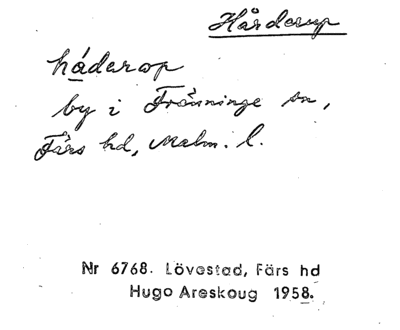 Hårderup
håderop
by i Tranninge sn,
Färs hd, Malm. l.
Nr 6768. Lövestad, Färs hd
Hugo Areskoug 1958.